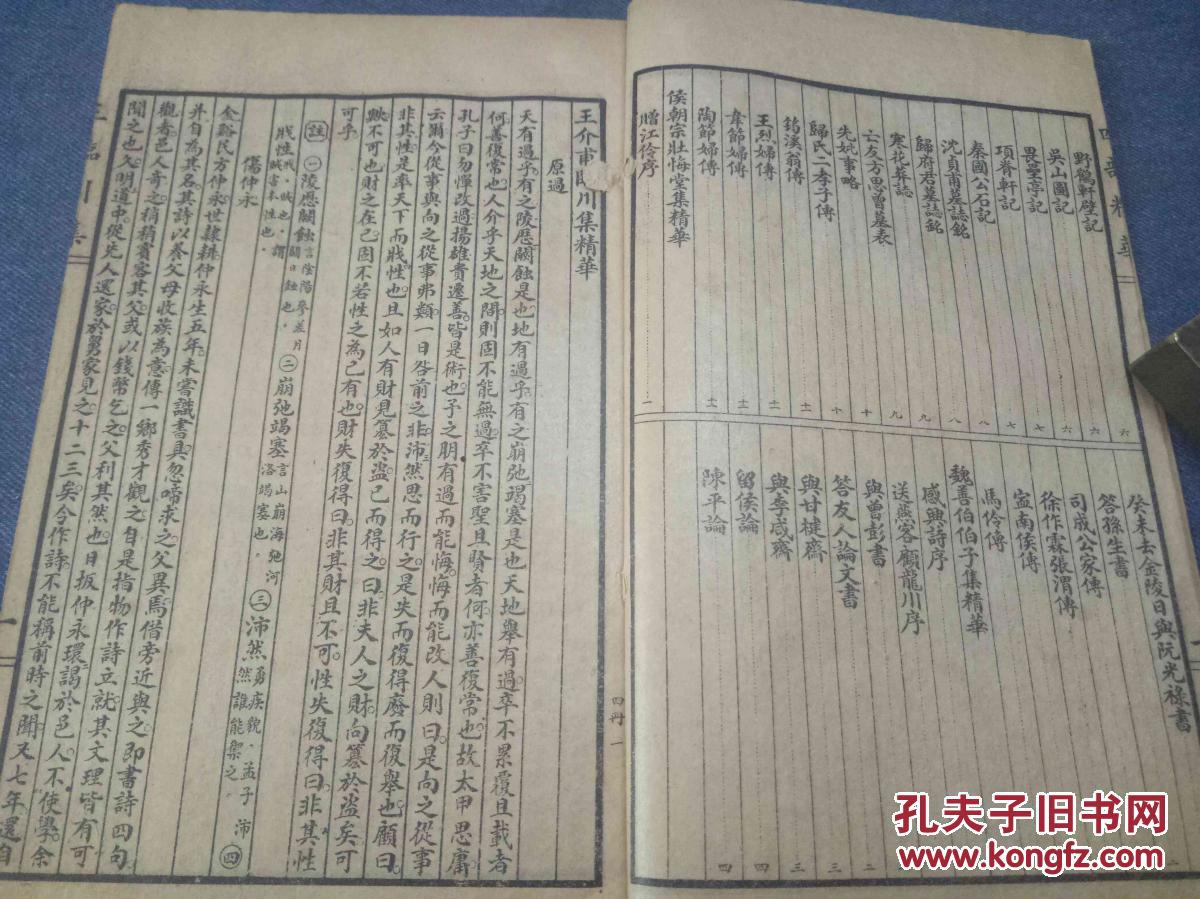 野鶴軒壁記 六
吳山圖記 六
畏壘亭記 六
項脊軒記 七
秦國公石記 七
沈貞甫墓誌銘 八
歸府君墓誌銘 八
寒花葬誌 九
亡友方思曾墓表 九
先妣事略 十
歸氏二孝子傳 十
筠溪翁傳 十一
王烈婦傳 十一
韋節婦傳 十二
陶節婦傳 十二
侯朝宗壯悔堂集精華
贈江伶序 一
癸未去金陵日與阮光祿書
答孫生書
司成公家傳
徐作霖張渭傳
寍南侯傳
馬伶傳
魏善伯伯子集精華
感興詩序
送燕客顧龍川序
與曾彭書
答友人論文書 二
與甘楗齋 三
與李咸齋 三
留侯論 四
陳平論 四
四冊一
王介甫臨川集精華
原過
天有過乎有之陵歷鬭蝕是也地有過乎有之崩弛竭塞是也天地舉有過卒不累覆且載者
何善復常也人介乎天地之間則固不能無過卒不害聖且賢者何亦善復常也故太甲思庸
孔子曰勿憚改過揚雄貴遷善皆是術也予之朋有過而能悔悔而能改人則曰是向之從事
云爾今從事與向之從事弗類一日咎前之非沛然思而行之是失而復得廢而復舉也顧曰
非其性是率天下而戕性也且如人有財見篡於盜已而得之曰非夫人之財向篡於盜矣可
歟不可也財之在己固不若性之為己有也財失復得曰非其財且不可性失復得曰非其性
可乎
註 一 陵歷鬭蝕 言陰陽參差月鬭日蝕也 二 崩弛竭塞 言山崩海弛河洛竭塞也 三 沛然 勇疾貌孟子沛然誰能禦之 四
戕性 戕賊也謂賊害本性也
傷仲永
金谿民方仲永世隸耕仲永生五年未嘗識書具忽啼求之父異焉借旁近與之即書詩四句
并自為其名其詩以養父母收族為意傳一鄉秀才觀之自是指物作詩立就其文理皆有可
觀者邑人奇之稍稍賓客其父或以錢幣乞之父利其然也日扳仲永環謁於邑人不使學余
聞之也久明道中從先人還家於舅家見之十二三矣令作詩不能稱前時之聞又七年還自
一